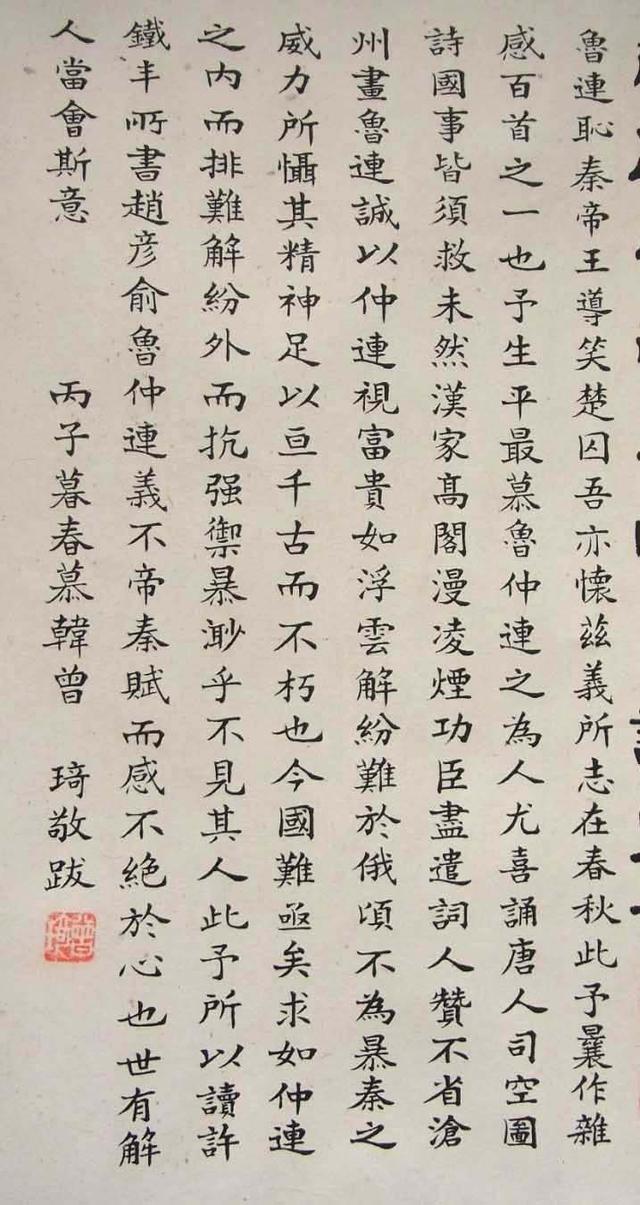 魯連恥秦帝王導笑楚囚吾亦懷茲義所志在春秋此予曩作雜
感百首之一也予生平最慕魯仲連之為人尤喜誦唐人司空圖
詩國事皆須救未然漢家高閣漫凌煙功臣盡遣詞人贊不省滄
州畫魯連誠以仲連視富貴如浮雲解紛難於俄頃不為暴秦之
威力所懾其精神足以亘千古而不朽也今國難亟矣求如仲連
之內而排難解紛外而抗强禦暴渺乎不見其人此予所以讀許
鐵丰所書趙彦俞魯仲連義不帝秦賦而感不絕於心也世有解
人當會斯意
丙子暮春慕韓曾琦敬跋
曾琦